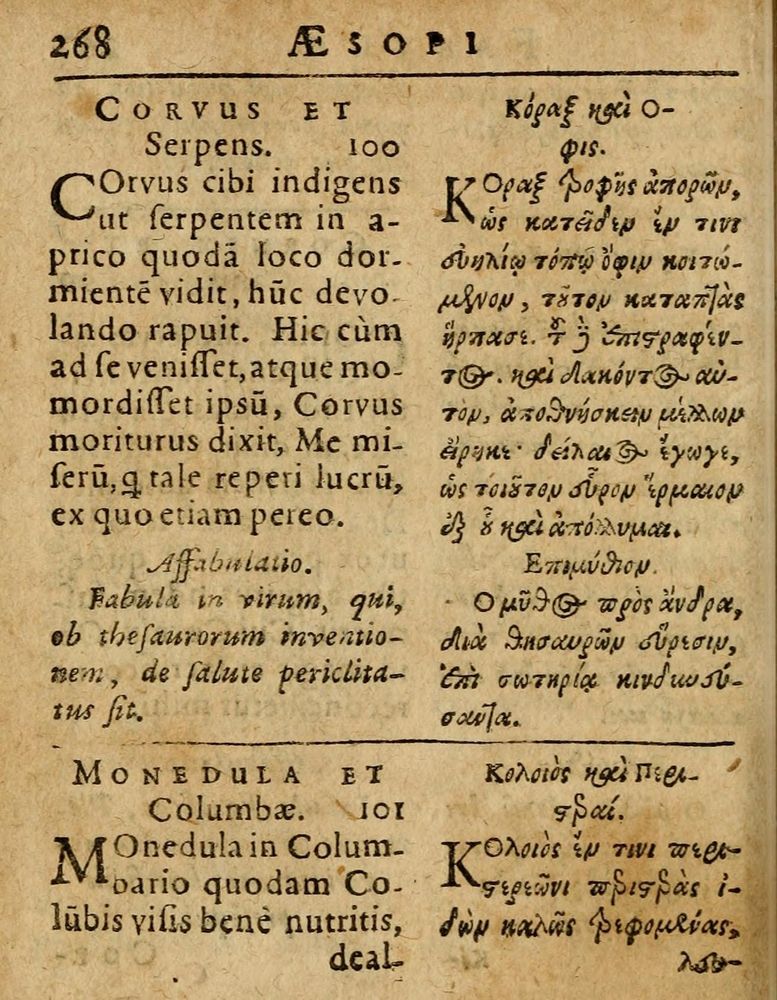 268 ÆSOPI
CORVUS ET
Serpens. 100
COrvus cibi indigens
ut serpentem in a-
prico quodā loco dor-
mientē vidit, hūc devo-
lando rapuit. Hic cùm
ad se venisset, atque mo-
mordisset ipsū, Corvus
moriturus dixit, Me mi-
serū, ꝗ tale reperi lucrū,
ex quo etiam pereo.
Affabulatio.
Fabula in virum, qui,
ob thesaurorum inventio-
nem, de salute periclita-
tus sit.
Κόραξ καὶ Ο-
φις.
ΚΟραξ τροφῆς ἀπορῶν,
ὡς κατεῖδεν ἔν τινι
εὐηλίῳ τόπῳ ὄφιν κοιτώ-
μενον, τοῦτον καταπτὰς
ἥρπασε. τοῦ δὲ ἐπιστραφέν-
τος. καὶ δακόντος αὐ-
τὸν, ἀποθνήσκειν μέλλων
εἴρηκε· δείλαιος ἔγωγε,
ὡς τοιοῦτον εὗρον ἕρμαιον
ἐξ οὗ καὶ ἀπόλλυμαι.
Επιμύθιον.
Ο μῦθος πρὸς ἄνδρα,
διὰ θησαυρῶν εὕρεσιν,
ἐπὶ σωτηρίᾳ κινδυνεύ-
σαντα.
MONEDULA ET
Columbæ. 101
MOnedula in Colum-
bario quodam Co-
lūbis visis benè nutritis,
deal-
Κολοιὸς καὶ Περι-
στεραί.
ΚΟλοιὸς ἔν τινι περι-
στερεῶνι περιστερὰς ἰ-
δὼν καλῶς τρεφομένας,
λευ-